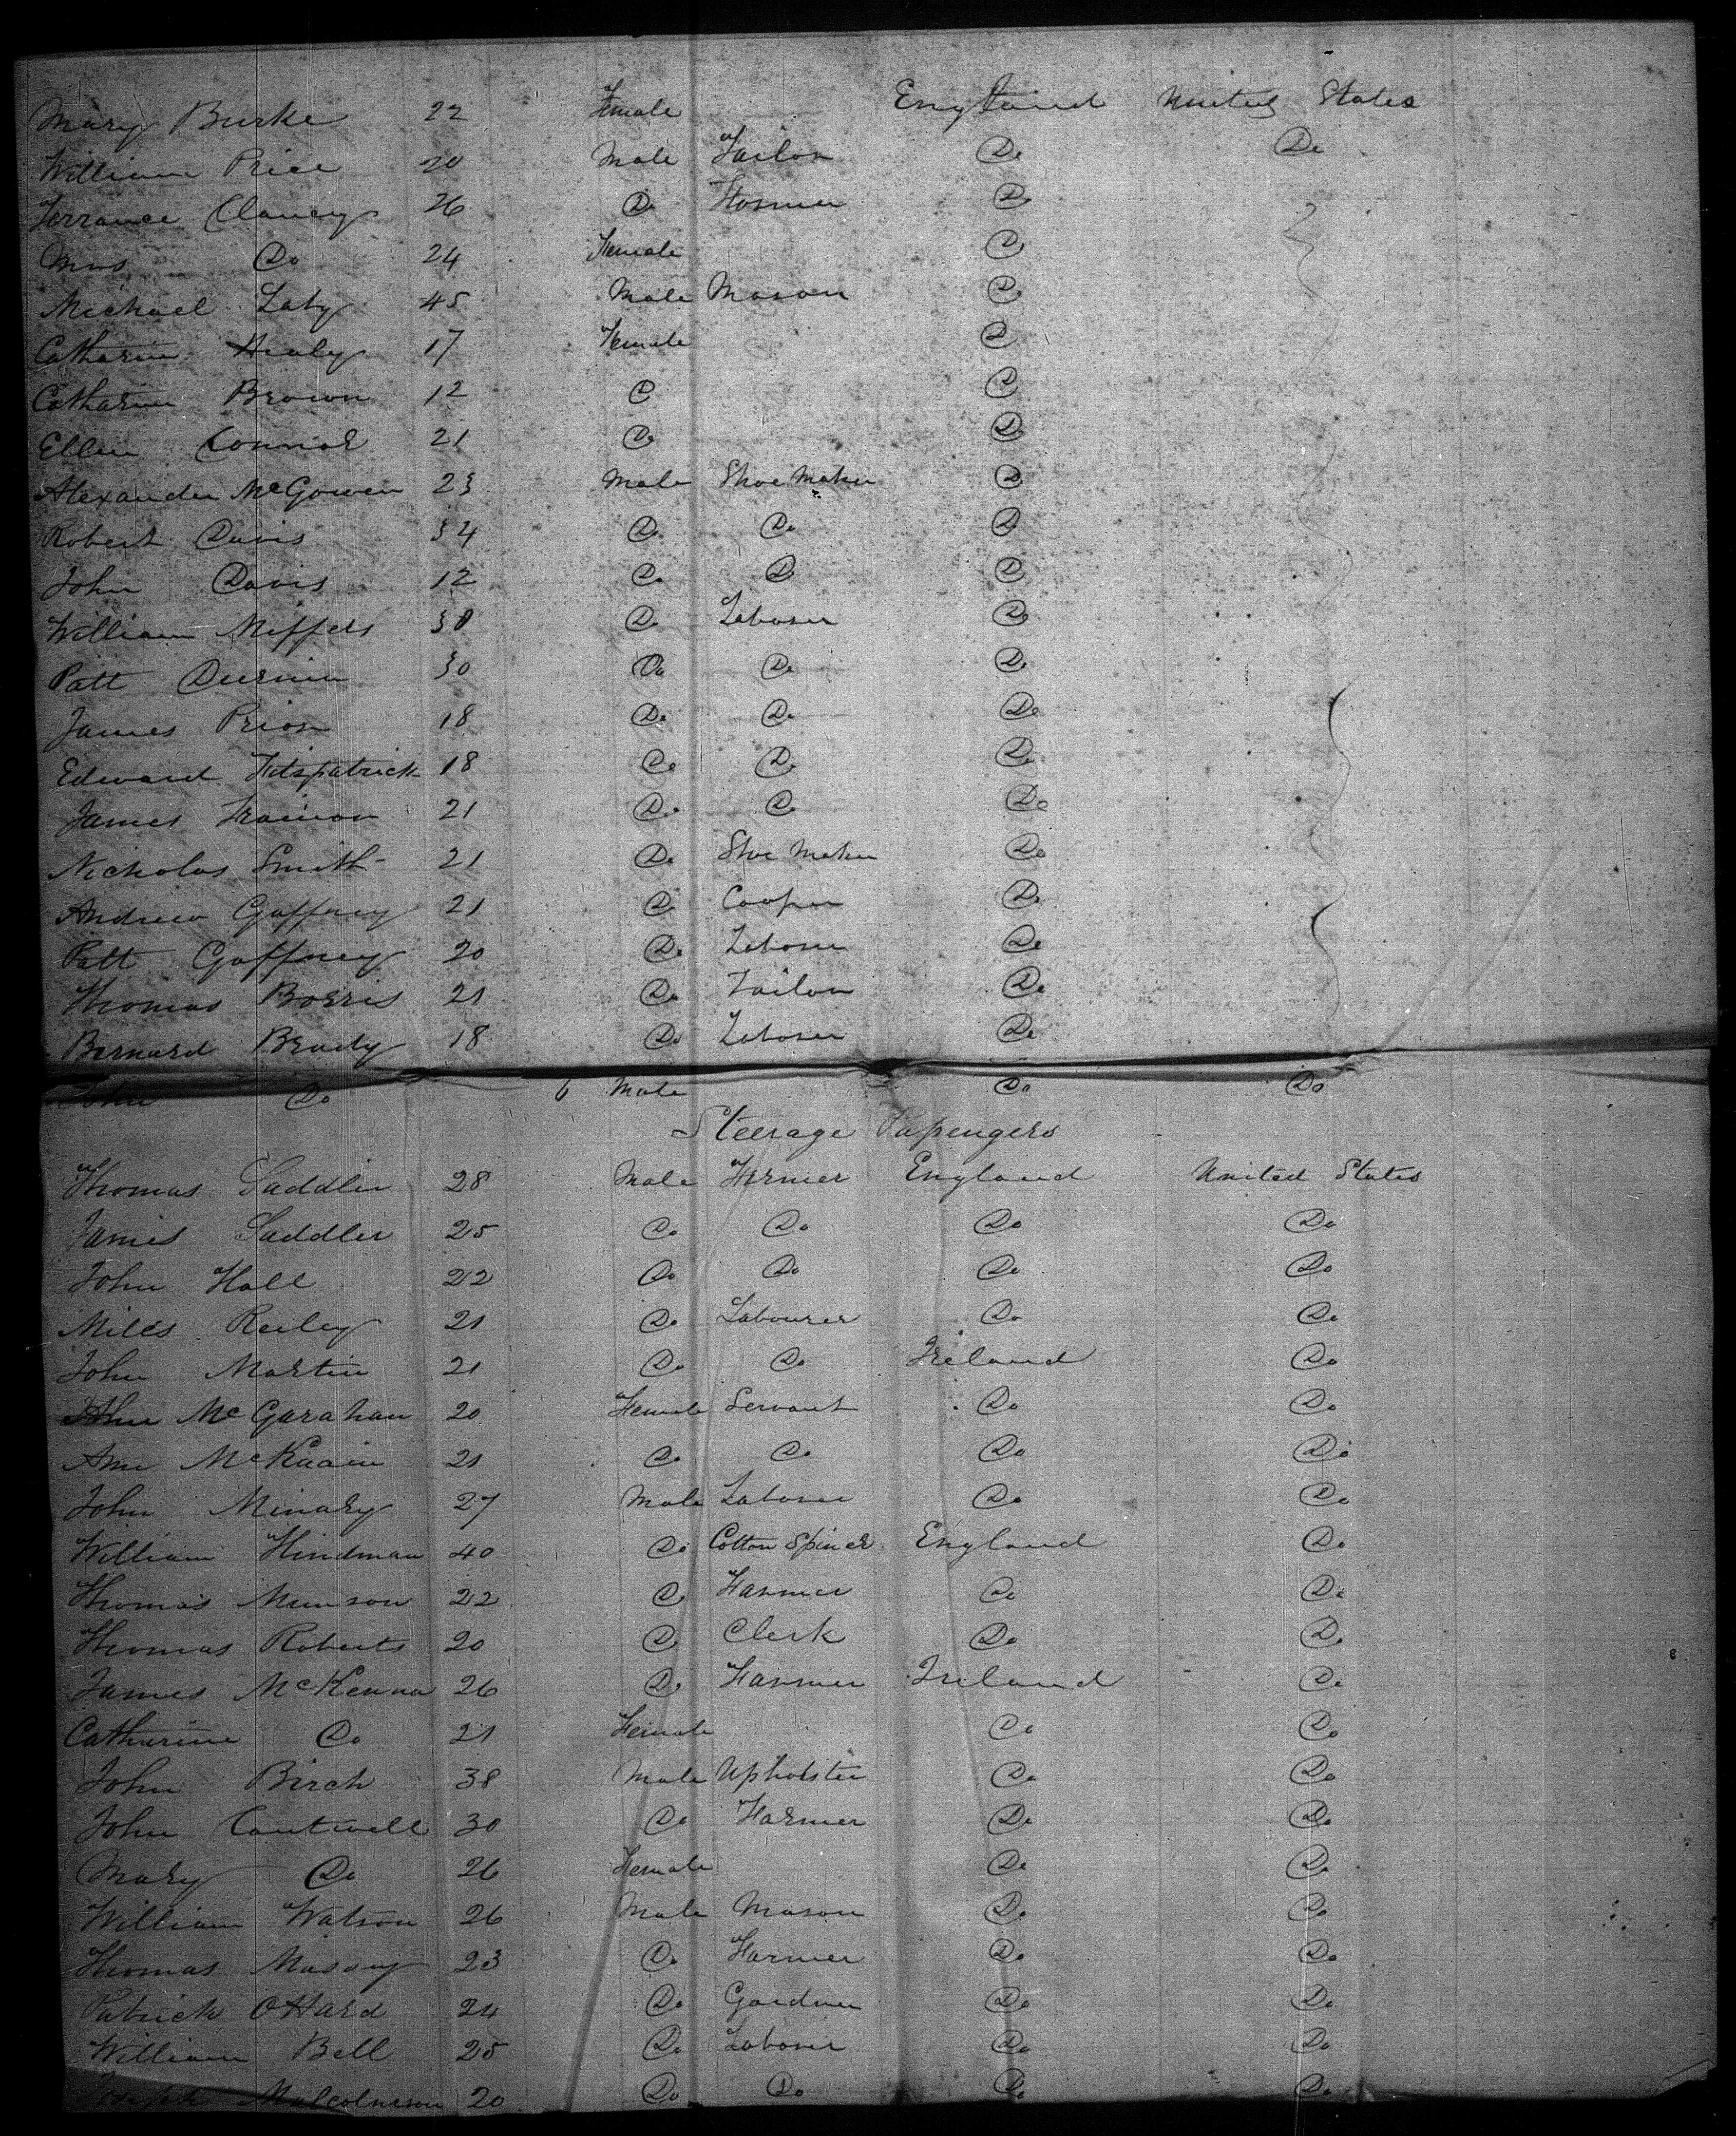 Mary Burke 22 Female England United States
William Price 20 Male Tailor Do Do
Terrance Clancy 26 Do Farmer Do
Mrs Do 24 Female Do
Michael Laby 45 Male Mason Do
Catharine Healy 17 Female Do
Catharine Brown 12 Do Do
Ellen Connor 21 Do Do
Alexander McGowen 23 Male Shoe Maker Do
Robert Davis 34 Do Do Do
John Davis 12 Do Do Do
William Miffels 30 Do Laborer Do
Patt Durnin 30 Do Do Do
James Prior 18 Do Do Do
Edward Fitzpatrick 18 Do Do Do
James Trainor 21 Do Do Do
Nicholas Smith 21 Do Shoe Maker Do
Andrew Gaffney 21 Do Cooper Do
Patt Gaffney 20 Do Laborer Do
Thomas Borris 21 Do Tailor Do
Bernard Brady 18 Do Laborer Do
John Do 6 Male Do Do
Steerage Passengers
Thomas Saddler 28 Male Farmer England United States
James Saddler 25 Do Do Do Do
John Hall 22 Do Do Do Do
Miles Reiley 21 Do Labourer Do Do
John Martin 21 Do Do Ireland Do
McGarahan 20 Female Servant Do Do
Ann 21 Do Do Do Do
John Minary 27 Male Laborer Do Do
William Hindman 40 Do Cotton Spiner England Do
Thomas Munson 22 Do Farmer Do Do
Thomas Roberts 20 Do Clerk Do Do
James McKenna 26 Do Farmer Ireland Do
Catharine Do 21 Female Do Do
John Birch 38 Male Upholster Do Do
John Cantwell 30 Do Farmer Do Do
Mary Do 26 Female Do Do
William Watson 26 Male Mason Do Do
Thomas Massey 23 Do Farmer Do Do
Patrick OHard 24 Do Gardner Do Do
William Bell 25 Do Laborer Do Do
Joseph Malcolmson 20 Do Do Do Do